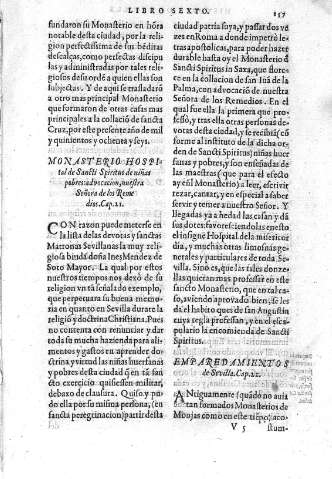 LIBRO SEXTO. 157
fundaron su Monasterio en hõra
notable desta ciudad, por la religion
perfectissima de sus bẽditas
descalças, como perfectas discipulas
y administradas por tales religiosos
desu ordẽ a quien ellas son
subjectas. Y de aqui se trasladarõ
a otro mas principal Monasterio
que formaron de otras casas mas
principales a la collaciõ de sancta
Cruz, por este presente año de mil
y quinientos y ochenta y seys.
MONASTERIO HOSPI
tal de Sancti Spiritus de niñas
pobres: advocacion, nuestra
Señora de los Reme
dios. Cap. 21.
CON razon puede meterse en
la lista de las devotas y sanctas
Matronas Sevillanas la muy religiosa
bindá doña Ines Mendez de
Soto Mayor. La qual por estos
nuestros tiempos nos dexó de su
religion vn tã señalado exemplo,
que perpetuara su buena memoria
en quanto en Sevilla durare la
religiõ y doctrina Christiana. Pues
no contenta con renunciar y dar
toda su mucha hazienda para alimentos
y gastos en aprender doctrina
y virtud las niñas huerfanas
y pobres desta ciudad q̃ en tã sancto
exercicio quisessen militar,
debaxo de clausura. Quiso, y pudo
ella por su misma persona, (en
sancta peregrinacion) partir desta
ciudad patria suya, y passar dos vezes
en Roma a donde impetrò letras
apostolicas, para poder hazer
durable hasta oy el Monasterio d̃
Sancti Spiritus in Saxa, que sustento
en la collacion de san Iuã de la
Palma, con advocaciõ de nuestra
Señora de los Remedios. En el
qual fue ella la primera que professò,
y tras ella otras personas devotas
desta ciudad, y se recibiã (cõ
forme al Instituto de la dicha orden
de Sancti Spiritus) niñas huerfanas
y pobres, y son enseñadas de
las maestras (que para el efecto
ay en el Monasterio) a leer, escrivir
rezar, cantar, y en especial a saber
servir y temer a nuestro Señor. Y
llegadas ya a hedad las casan y dã
sus dotes: favoreciendolas en esto
el insigne Hospital dela misericordia,
y muchas otras limosnas generales
y particulares de toda Sevilla.
Sino es, que las tales donzellas
quieran mas professar en este
sancto Monasterio, que en tal caso,
aviendo aprovado bien, se les
dà el habito que es de san Augustin
cuya regla professan, y en el escapulario
la encomienda de Sancti
Spiritus.
EMPAREDAMIENTOS
de Sevilla. Cap. 22.
ANtiguamente (quãdo no auia
tan formados Monasterios de
Mõjas como en este tiẽpo) aco-
V 5 stum-